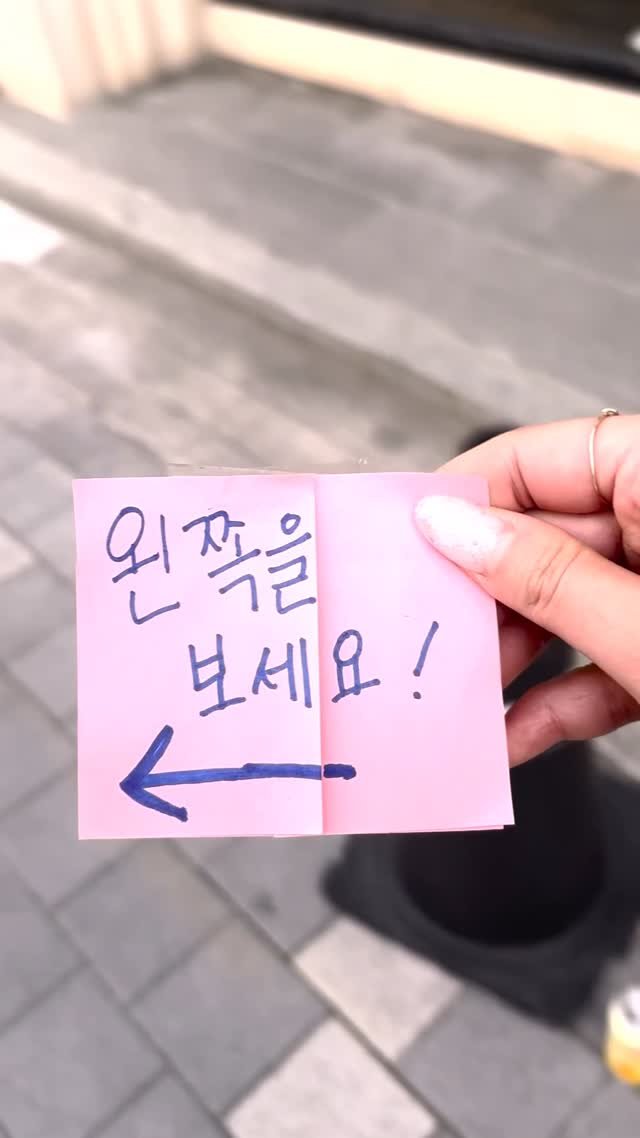 왼쪽을
보세요!